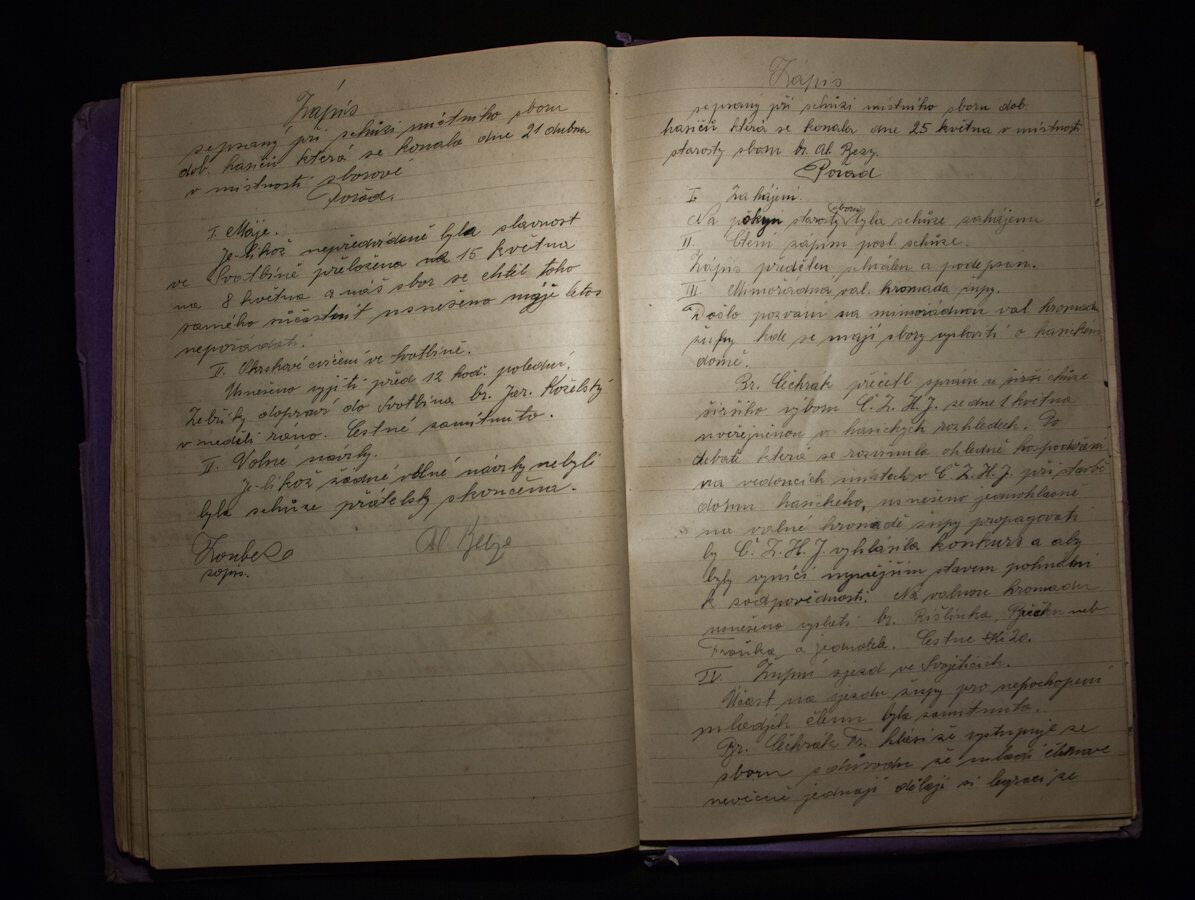 Zápis
sepsaný při schůzi místního sboru
dob. hasičů která se konala dne 21 dubna
v místnosti sborové
Pořad.
I. Máje.
Je-likož nepředvídaně byla slavnost
ve Svotbíně přeložena na 15 května
na 8 května a náš sbor se chtěl toho
samého súčastnit usneseno máje letos
nepořádat.
II. Okrskové cvičení ve Svotbíně.
Usneseno vyjíti před 12 hod. polední.
Žebříky dopraví do Svotbína br. Jar. Koželský
v neděli ráno. Cestné zamítnuto.
II. Volné návrhy.
Je-likož žádné volné návrhy nebyli
byla schůze přátelsky skončena.
Al. Beze
zapis.
Zápis
sepsaný při schůzi místního sboru dob.
hasičů která se konala dne 25 května v místnosti
starosty sboru br. Al. Bezy.
Pořad
I. Zahájení.
Na pokyn starosty sboru byla schůze zahájena
II. Čtení zápisu posl. schůze.
Zápis předčten, schválen a podepsán.
III. Mimořádná val. hromada župy.
Došlo pozvání na mimořádnou val hromadu
župy kde se mají sbory vysloviti o hasičkém
domě.
Br. Čichrák přečetl zprávu u širší schůze
širšího výboru Č. Z. H. J. ze dne 1 května
uveřejněnou v hasičkých rozhledech. Po
debatě která se rozvinula ohledně hospodaření
na vedoucích místech v Č Z. H. J. při stavbě
domu hasičkého, usneseno jednohlasně
na valné hromadě župy propagovati
by Č. Z. H. J. vyhlásila konkurs a aby
byly viníci nynějším stavem pohnáni
k zodpovědnosti. Na valnou hromadu
usneseno vyslati br. Rišlinka, neb
a jednatele. Cestné Kč 20.
IV. Župní sjezd ve Svojšicích.
Účast na sjezdu župy pro nepochopení
mladých členů byla zamítnuta.
Br. Čichrák Fr. hlásí že vystupuje ze
sboru z důvodu že mladí členové
nevěcně jednají dělají si legraci ze